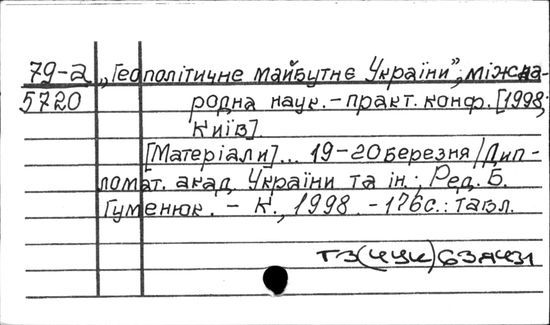 79-2 „Геополітичне майбутнє України”, міжна-
5720 родна наук.-практ. конф. [1998;
Київ]
[Матеріали]... 19-20 березня / Дип-
ломат. акад. України та ін.; Ред. Б.
Гуменюк. - К., 1998. - 176с.: табл.